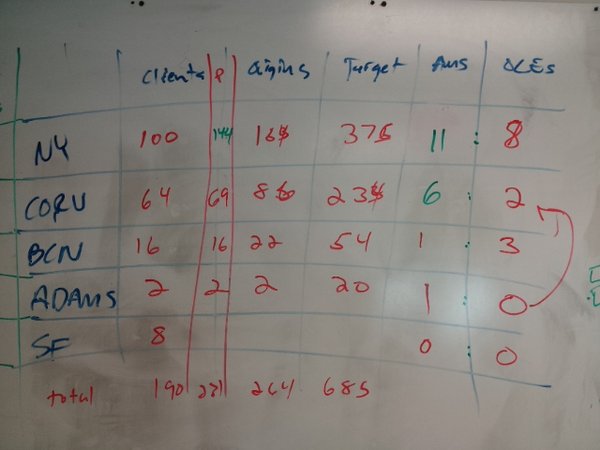 Clients P Origins Target AMs
NY 100 144 375 11 : 8
CORV 64 69 6 : 2
BCN 16 16 22 54 1 : 3
ADAMS 2 2 2 20 1 : 0
SF 8 0 : 0
total 190 231 264 685